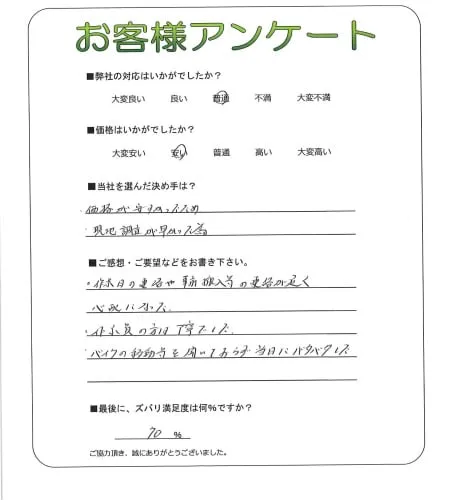 お客様アンケート
■弊社の対応はいかがでしたか？
大変良い 良い 普通 不満 大変不満
■価格はいかがでしたか？
大変安い 安い 普通 高い 大変高い
■当社を選んだ決め手は？
・価格が安すかったため
・現地調査が早かった為
■ご感想・ご要望などをお書き下さい。
・作業日の連絡や事前搬入等の連絡が遅く
心配になった。
・作業員の方は丁寧でした。
・バイクの移動等を聞いておらず当日にバタバタした
■最後に、ズバリ満足度は何%ですか？
70 %
ご協力頂き、誠にありがとうございました。